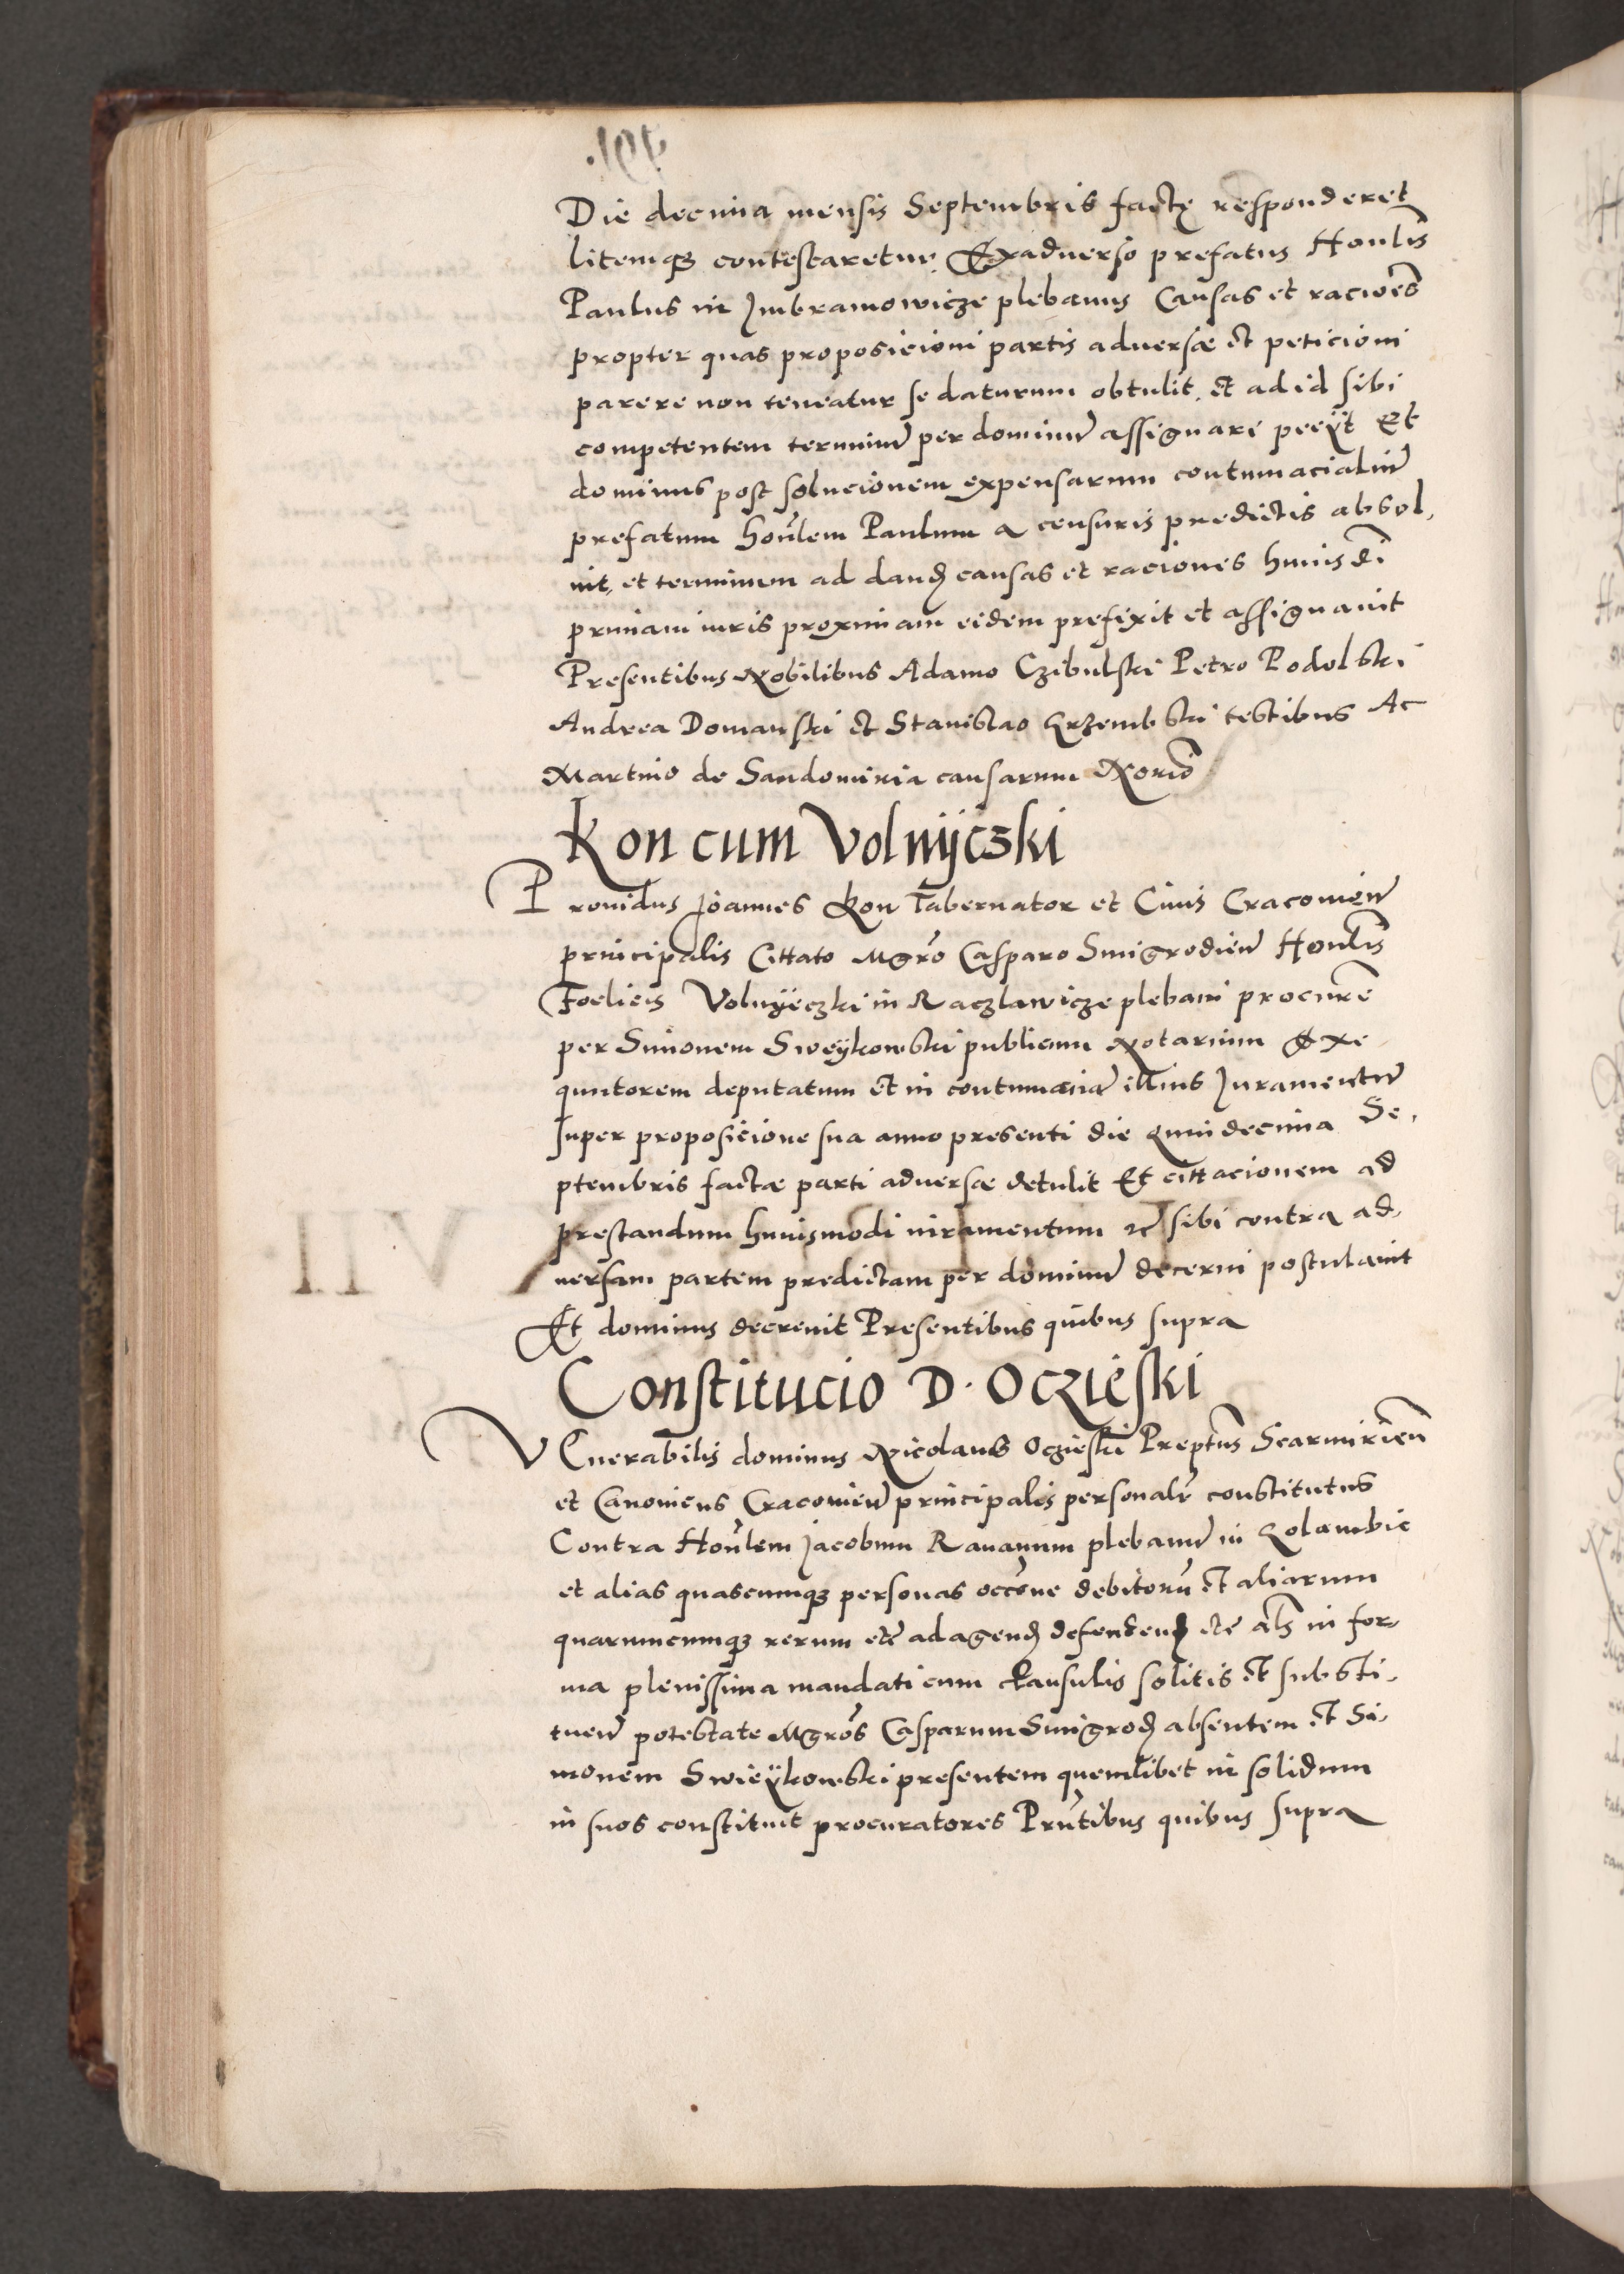 Die decima mensis Septembris factę responderet
litemqȝ contestaretur. Exaduerso prefatus Honlis̃
Paulus in Imbramowicze plebanus Causas et racioẽs
propter quas proposicioni partis aduersæ et peticioni
parere non teneatur se daturum obtulit. et ad id sibi
competentem terminũ per dominũ assignari peeÿt Et
dominus post solucionem expensarum contumacialiũ
prefatum honl̃em Paulum a censuris predictis absol,
uit, et terminum ad dand causas et raciones huiusd̃i
primam iuris proximam eidem prefixit et assignauit
Presentibus Nobilibus Adamo Czibulski Petro Podolski
Andrea Domanski et Stanislao Krzembski testibus Ac
Martino de Sandomiria causarum Norio͂
Kon cum Volnijczki
Prouidus Joannes Kon Tabernator et Ciuis Cracouień
principalis Cittato Mgr̃o Casparo Smigrodień Honl̃is
Foelicis Volnÿeczki in Raczlawicze plebani procurẽ
per Simonem Sweÿkowski publicum Notarium Exe
quutorem deputatum et in contumaciã illius Iuramentũ
super proposicione sua anno presenti die quindecima Se,
ptembris factæ parti aduersæ detulit Et cittacionem ad
prestandum huiusmodi iuramentum et sibi contra ad,
uersam partem predictam per dominũ decerni postulauit
Et dominus decreuit Presentibus quibus supra
Constitucio D. Oczieski
VEnerabilis dominus Nicolaus Oczieski Preptũs Scarmirień
et Canonicus Cracouień principalis personalr̃ constitutus
Contra Honl̃em Jacobum Rauanum plebanũ in Golambie
et alias quascumqȝ personas occõne debitorũ et aliarum
quarumcumqȝ rerum etc̃ ad agend defendend etc̃ als̃ in for,
ma plenissima mandati cum clausulis solitis et substi,
tuen̄ potestate Mgr̃os Casparum Smigrod absentem et Si,
monem Swieÿkowski presentem quemlibet in solidum
in suos constituit procuratores Prñtibus quibus supra